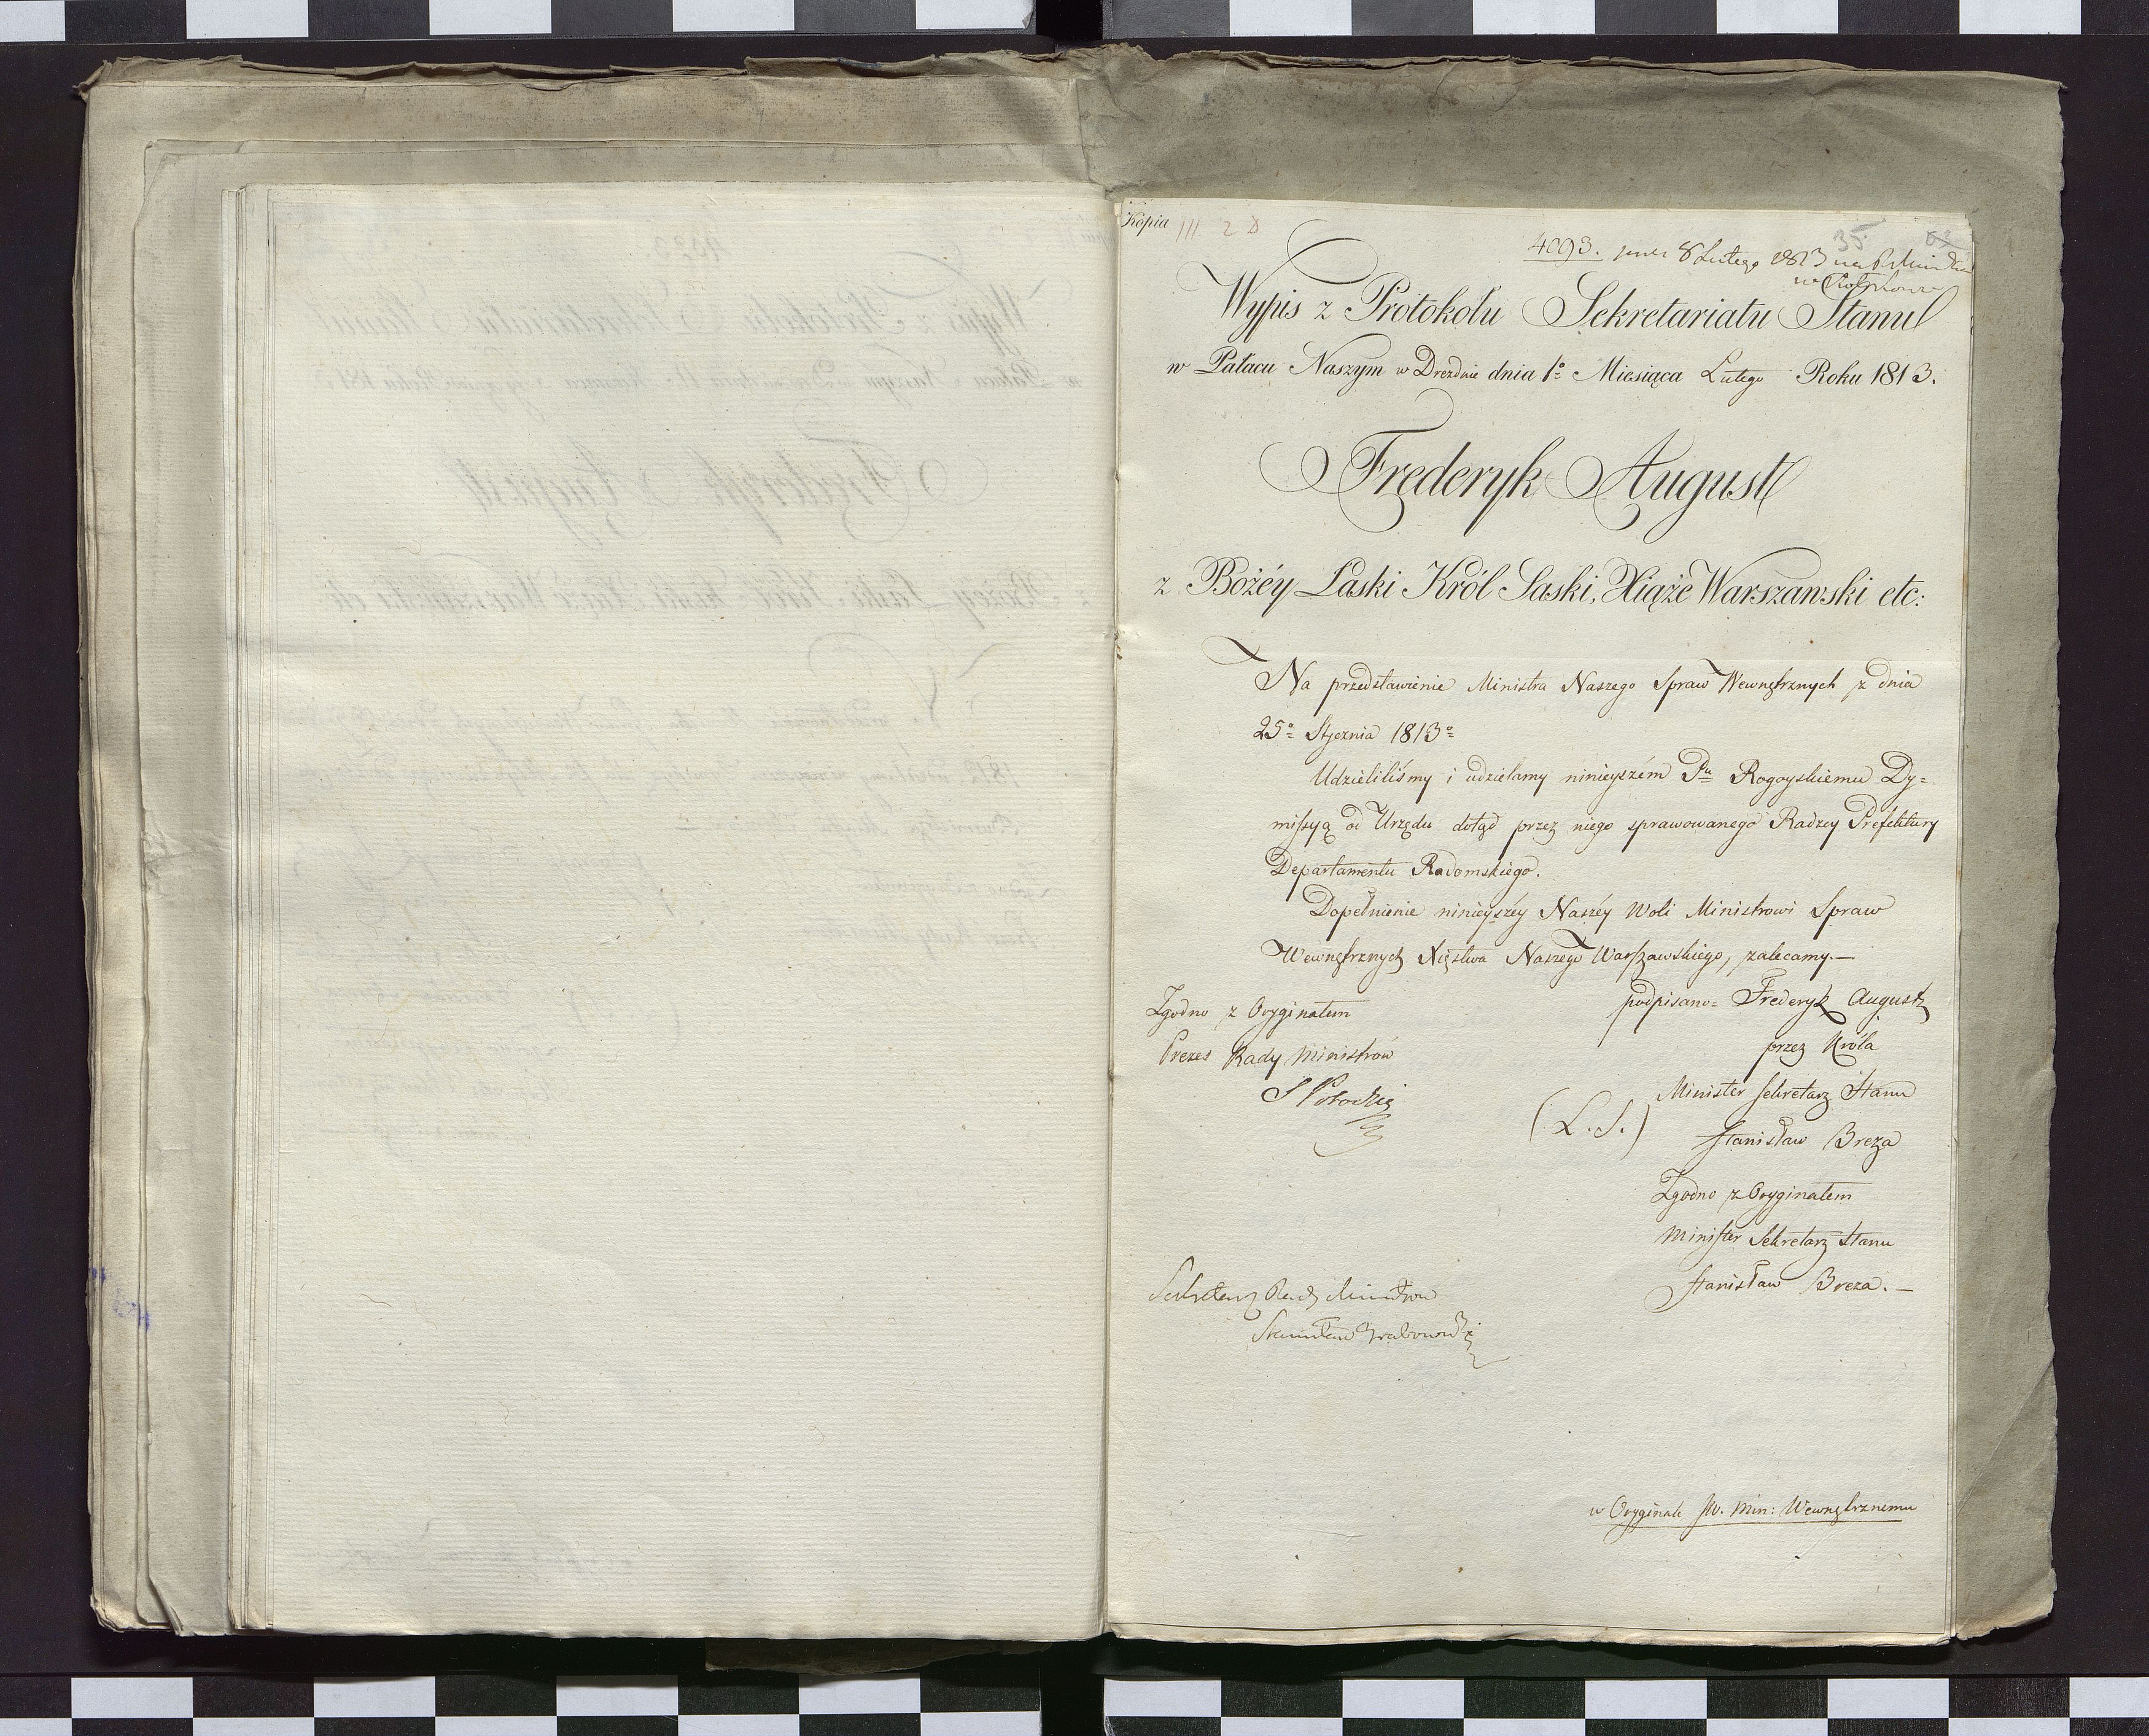 Kopia III. 2 8
35. 62
4093. 8 Lutego 1813
w Piotrkowie
Wypis z Protokołu Sekretariatu Stanu
w Pałacu Naszym w Dreźnie dnia 1º Miesiąca Lutego Roku 1813.
Frederyk August
z Bożéy Łaski Król Saski, Xiąże Warszawski etc:
Na przedstawienie Ministra Naszego Spraw Wewnętrznych z dnia
25º Stycznia 1813º
Udzieliliśmy i udzielamy ninieyszém Pu Rogoyskiemu Dy=
missyą od Urzędu dotąd przez niego sprawowanego Radzcy Prefektury
Departamentu Radomskiego.
Dopełnienie ninieyszéy Naszéy Woli Ministrowi Spraw
Wewnętrznych Xięstwa Naszego Warszawskiego, zalecamy.—
Zgodno z Oryginałem
Prezes Rady Ministrów
S Potocki
podpisano= Frederyk August
przez Króla
Minister Sekretarz Stanu
(L.S.) Stanisław Breza
Zgodno z Oryginałem
Minister Sekretarz Stanu
Stanisław Breza.—
Sekretarz Rady Ministrów
Stanisław Grabowski
w Oryginale JW. Min: Wewnętrznemu